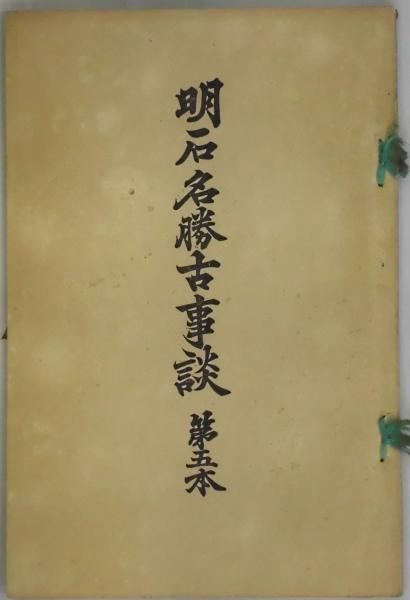 明石名勝古事談 第五本